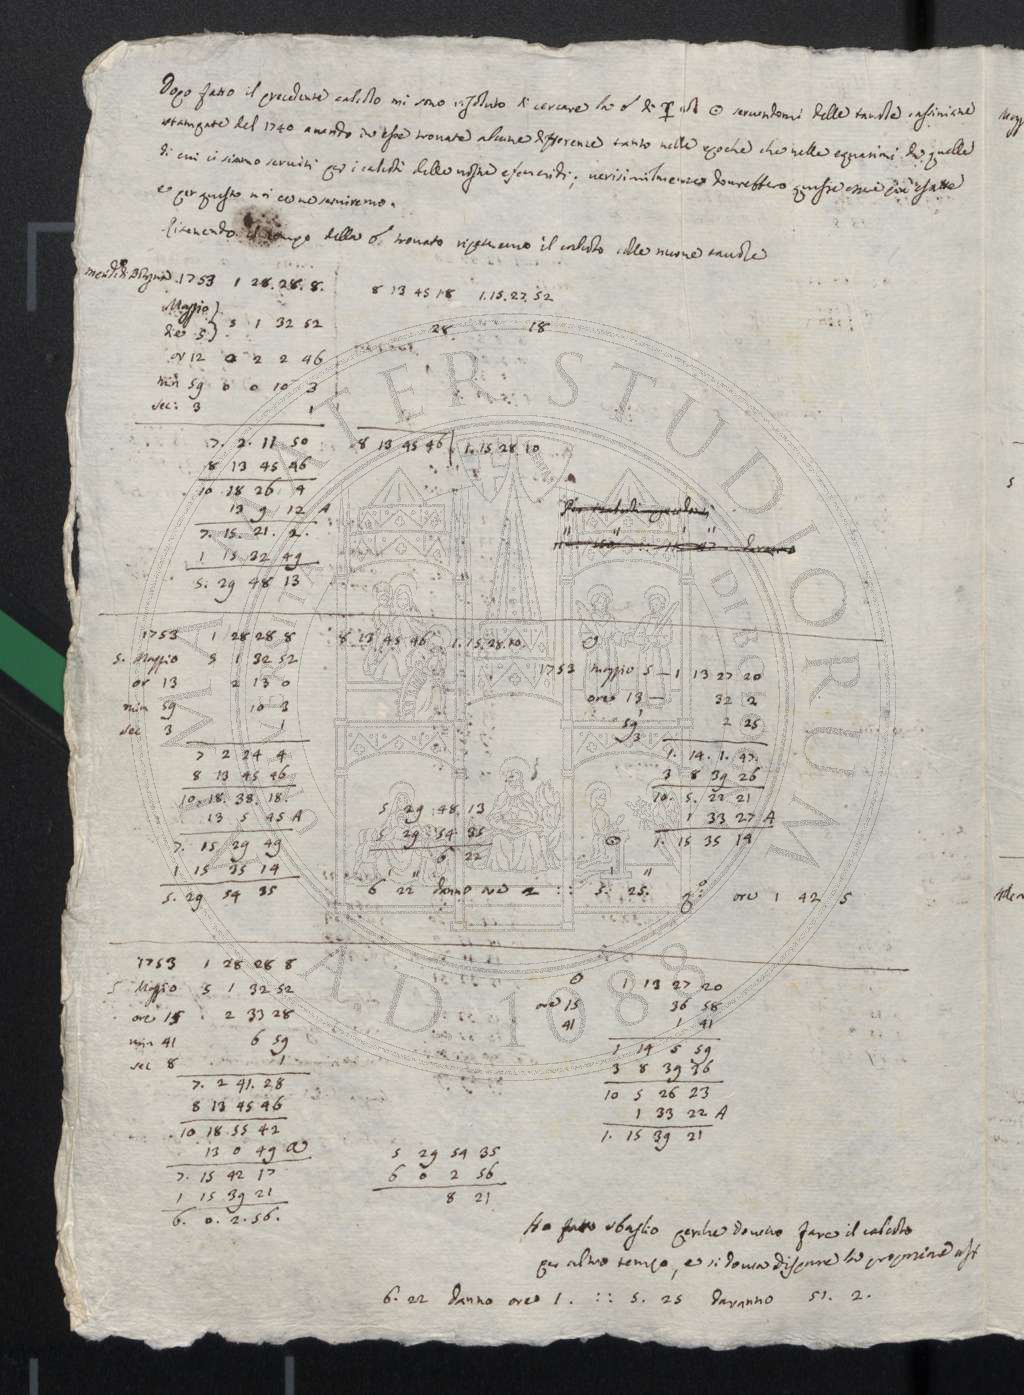 Dopo fatto il precedente calcolo mi sono risoluto di cercare la ☍ di ☿ col ☉ servendomi delle tauole cassiniane
stampate del 1740 auendo in esse trouate alcune differenze tanto nelle epoche che nelle equazioni da quelle
di cui ci siamo seruiti per i calcoli delle nostre efemeridi; uerisimilmente dourebbero queste essere più esatte
e per questo noi ce ne seruiremo.
Ritenendo il tempo della ☌ trouato ripeteremo il calcolo colle nuoue tauole
1753 1 28. 28. 8. 8 13 45 18 1. 15. 27. 52
Maggio
die 5 5 1 32 52 28 18
or 12 0 2 2 46
min 59 0 0 10 3
sec: 3 1
7. 2. 11 50 8 13 45 46 1. 15 28 10
8 13 45 46
10 18 26 4
13 9 12 A
7. 15. 21. 2.
1 15 32 49
5. 29 48 13
1753 1 28 28 8 8 13 45 46 1. 15. 28. 10.
5. Maggio 5 1 32 52 1753 Maggio 5 — 1 13 27 20
or 13 2 13 0 ore 13 — 32 2
min 59 10 3 59 2 25
sec 3 1 3
7 2 24 4 1. 14. 1. 47.
8 13 45 46 3 8 39 26
10. 18. 38. 18. 10. 5. 22 21
13 5 45 A 5 29 48 13 1 33 27 A
7. 15 29 49 5 29 54 35 ☉ 1. 15 35 14
1 15 35 14 6 22
5. 29 54 35 6 22 danno ore 2 :: 5. 25. ore 1 42 5
1753 1 28 28 8 ☉ 1 13 27 20
5 Maggio 5 1 32 52 ore 15 36 58
ore 15 2 33 28 41 1 41
min 41 6 59 1 14 5 59
sec 8 1 3 8 39 36
7. 2 41. 28 10 5 26 23
8 13 45 46 1 33 22 A
10 18. 55 42 1. 15 39 21
13 0 49 A 5 29 54 35
7. 15 42 17 6 0 2 56
1 15 39 21 8 21
6. 0. 2. 56.
Ho fatto sbaglio perche doueuo fare il calcolo
per altro tempo, e si doueua disporre la proporzione
6. 22 danno ore 1. :: 5. 25 daranno 51. 2.
ALMA MATER STUDIORUM
A.D. 1088